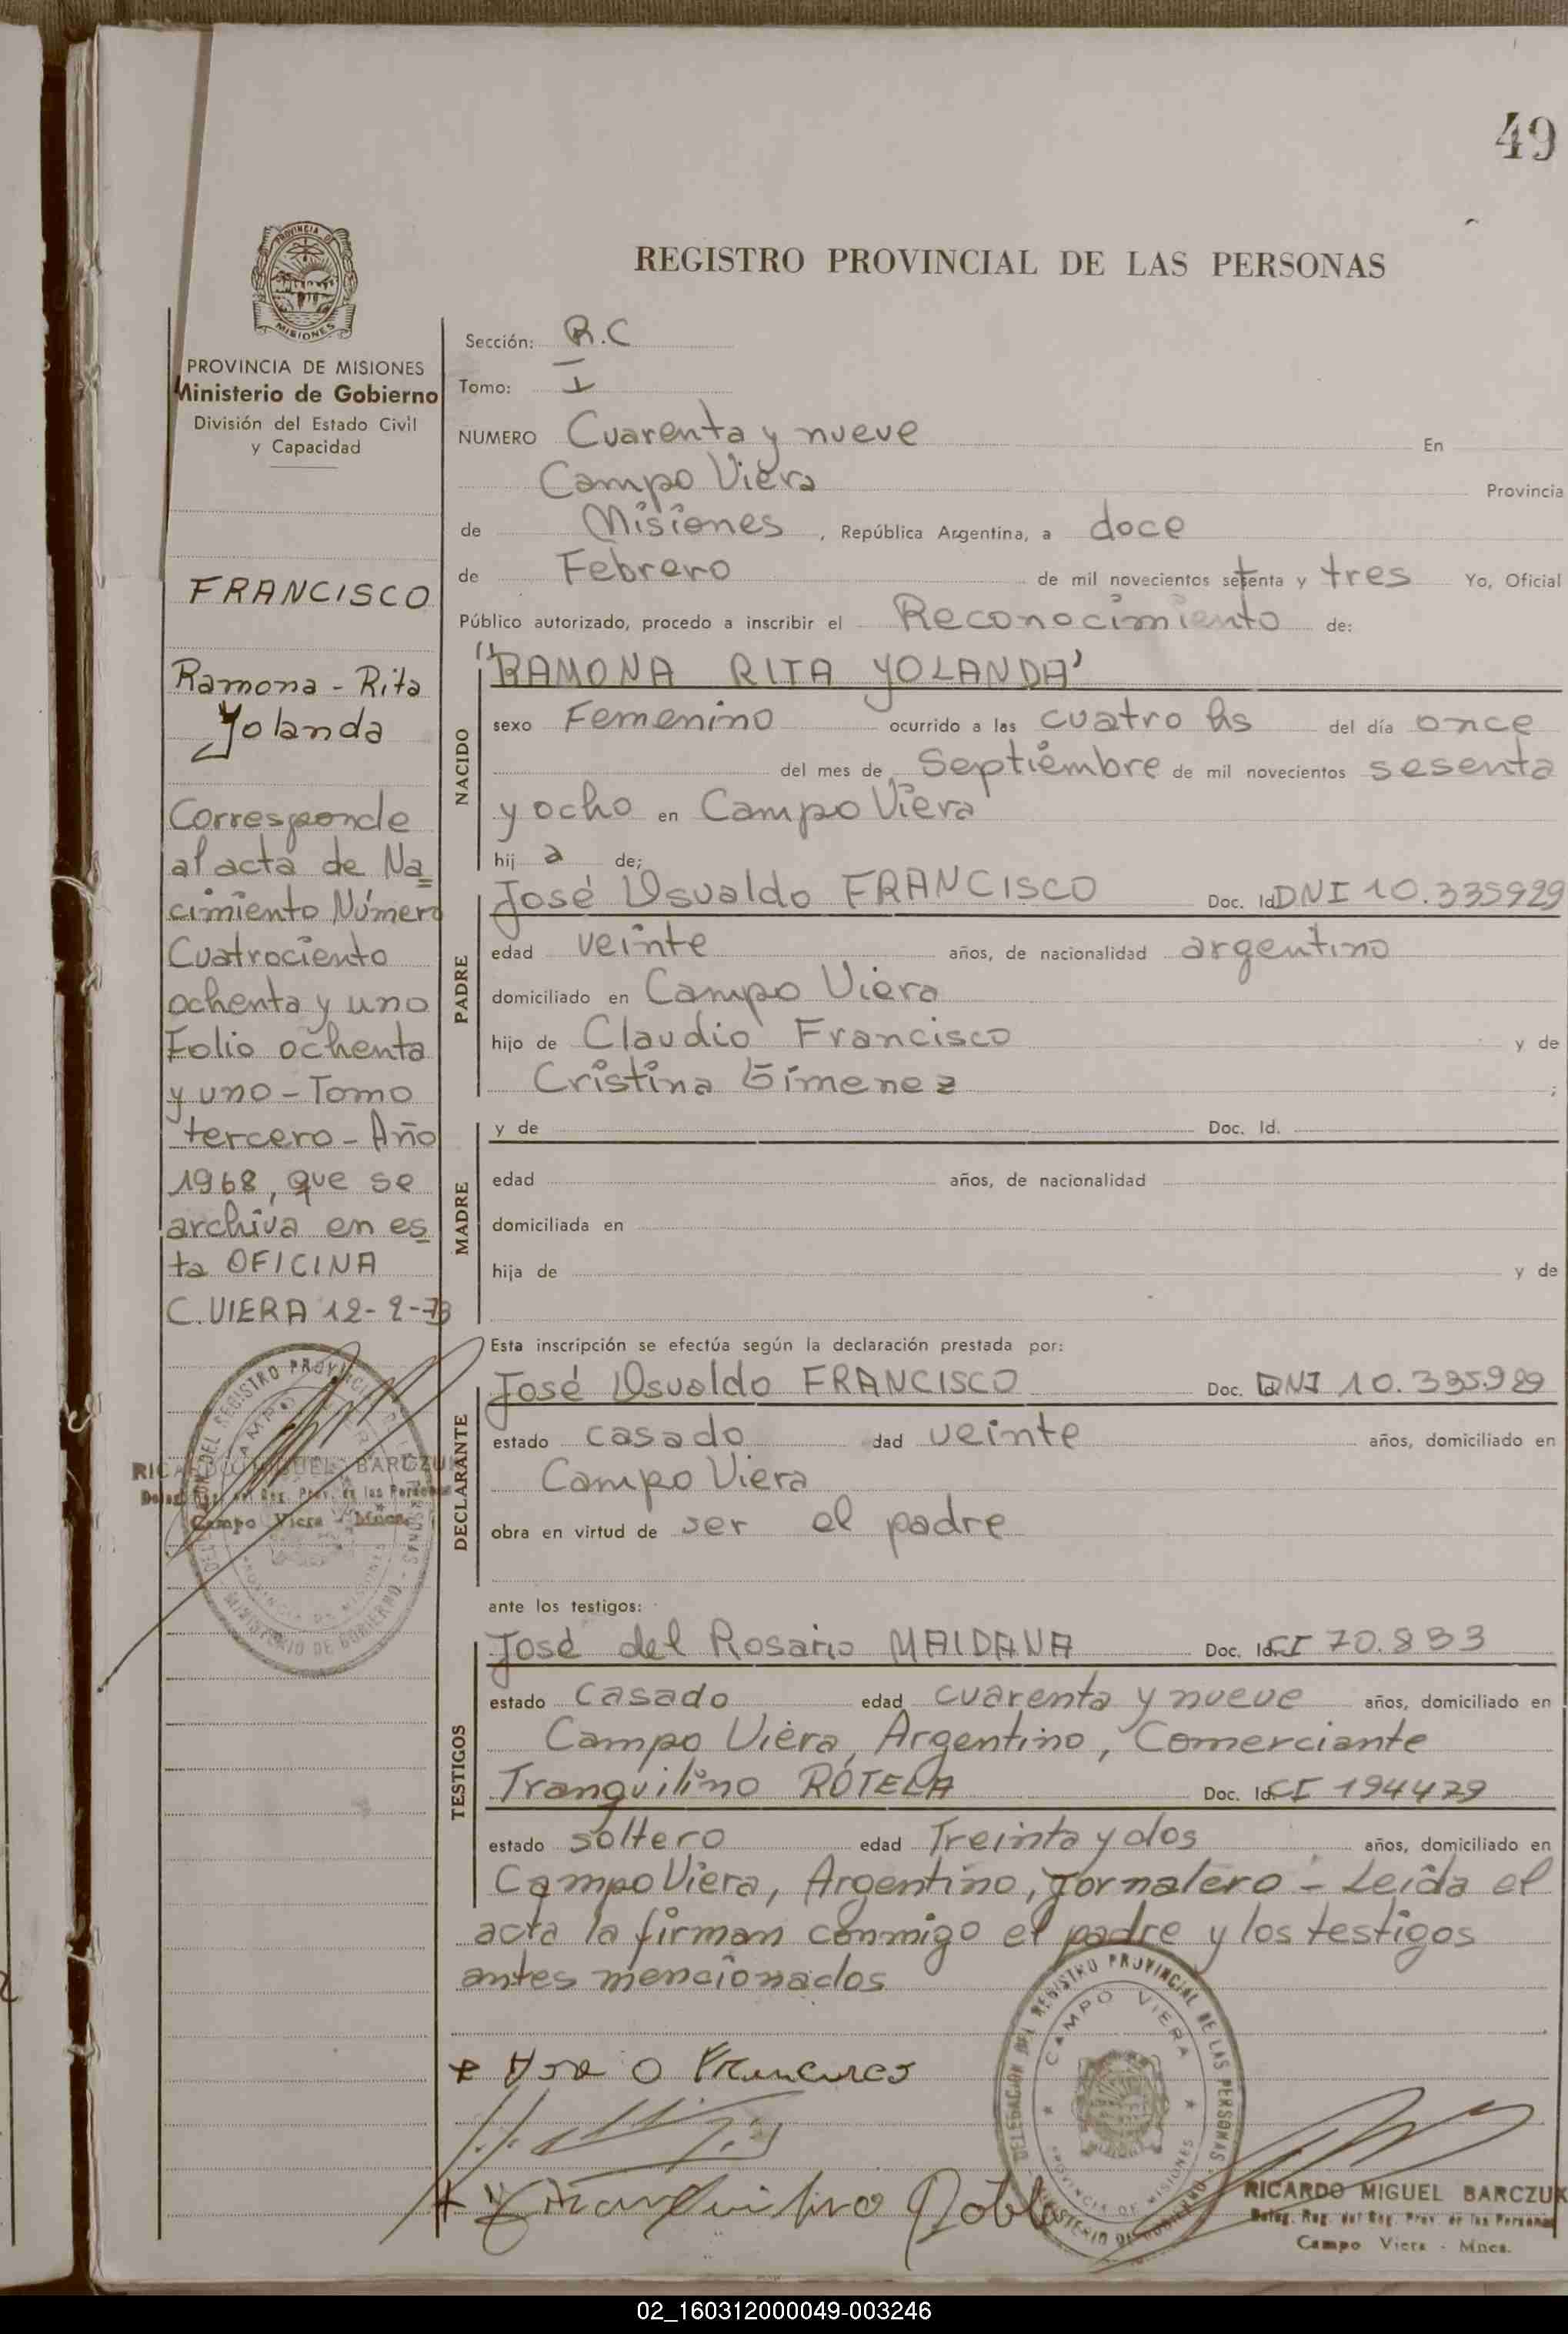 49
PROVINCIA DE
MISIONES
REGISTRO PROVINCIAL DE LAS PERSONAS
PROVINCIA DE MISIONES
Ministerio de Gobierno
División del Estado Civil
y Capacidad
FRANCISCO
Ramona - Rita
Yolanda
Corresponde
al acta de Na=
cimiento Número
Cuatrociento
ochenta y uno
Folio ochenta
y uno - Tomo
tercero - Año
1968, que se
archiva en es
ta OFICINA
C. VIERA 12-2-73
RICARDO MIGUEL BARCZUK
Deleg. Reg. del Reg. Prov. de las Personas
Campo Viera - Mnes.
Sección: R.C
Tomo: I
NUMERO Cuarenta y nueve En
Campo Viera Provincia
de Misiones, República Argentina, a doce
de Febrero de mil novecientos setenta y tres Yo, Oficial
Público autorizado, procedo a inscribir el Reconocimiento de:
"RAMONA RITA YOLANDA"
NACIDO
sexo Femenino ocurrido a las cuatro hs del día once
del mes de Septiembre de mil novecientos sesenta
y ocho en Campo Viera
hij a de;
PADRE
José Osvaldo FRANCISCO Doc. Id DNI 10.335929
edad veinte años, de nacionalidad argentino
domiciliado en Campo Viera
hijo de Claudio Francisco y de
Cristina Gimenez ;
MADRE
y de Doc. Id.
edad años, de nacionalidad
domiciliada en
hija de y de
Esta inscripción se efectúa según la declaración prestada por:
DECLARANTE
José Osvaldo FRANCISCO Doc. DNI 10.335.929
estado casado dad veinte años, domiciliado en
Campo Viera
obra en virtud de ser el padre
ante los testigos:
TESTIGOS
José del Rosario MAIDANA Doc. Id. CI 70.833
estado Casado edad cuarenta y nueve años, domiciliado en
Campo Viera, Argentino, Comerciante
Tranquilino ROTELA Doc. Id. CI 194479
estado soltero edad Treinta y dos años, domiciliado en
Campo Viera, Argentino, Jornalero - Leída el
acta la firman conmigo el padre y los testigos
antes mencionados
DELEGACION DEL REGISTRO PROVINCIAL DE LAS PERSONAS
CAMPO VIERA
PROVINCIA DE MISIONES
MINISTERIO DE GOBIERNO
RICARDO MIGUEL BARCZUK
Deleg. Reg. del Reg. Prov. de las Personas
Campo Viera - Mnes.
02_160312000049-003246